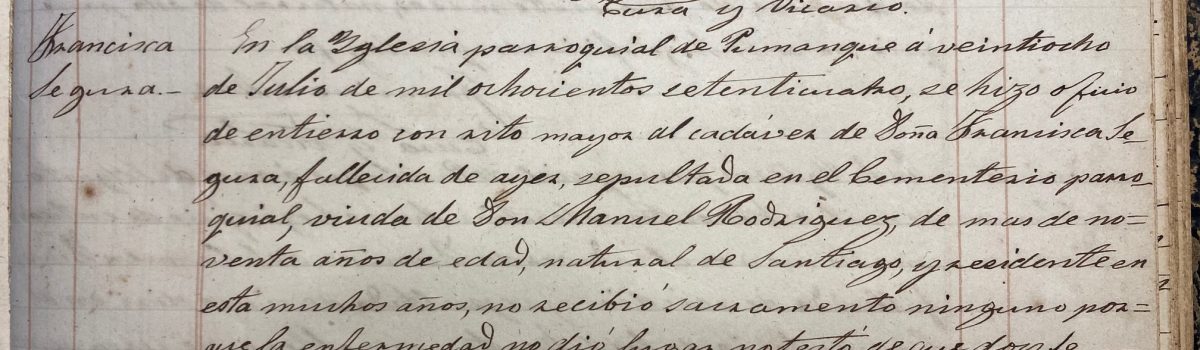 Cura y Vicario.
Francisca
Segura.-
En la Yglesia parroquial de Pumanque á veintiocho
de Julio de mil ochocientos setenticuatro, se hizo oficio
de entierro con rito mayor al cadáver de Doña Francisca Se-
gura, fallecida de ayer, sepultada en el Cementerio parro-
quial, viuda de Don Manuel Rodriguez, de mas de no=
venta años de edad, natural de Santiago, y residente en
esta muchos años, no recibió sacramento ninguno por=
que la enfermedad no dió lugar, no testó de que doi fe